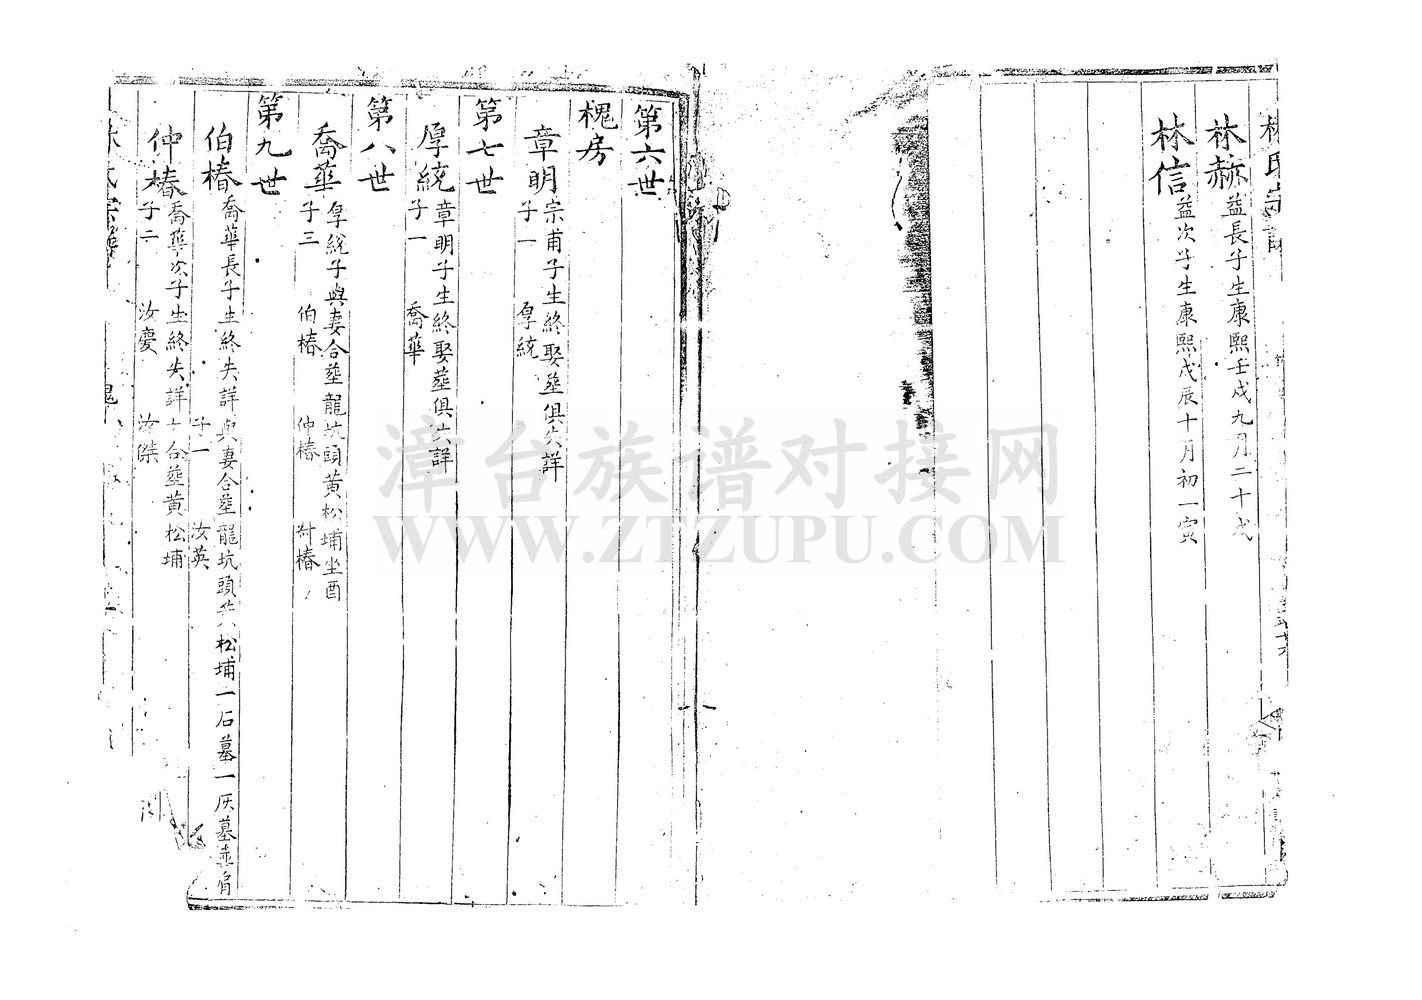 林赫 益長子生康熙壬戌九月二十戌
林信 益次子生康熙戊辰十月初一寅
第六世
槐房
章明 宗甫子生終娶葬俱失詳
子一 厚統
第七世
厚統 章明子生終娶葬俱失詳
子一 喬華
第八世
喬華 厚統子與妻合葬龍坑頭黄松埔坐酉
子三 伯椿 仲椿 椿
第九世
伯椿 喬華長子生終失詳與妻合葬龍坑頭黄松埔一石墓一灰墓葬
子一 汝英
仲椿 喬華次子生終失詳 合葬黄松埔
子二 汝慶 汝傑
漳台族谱对接网
WWW.ZTZUPU.COM